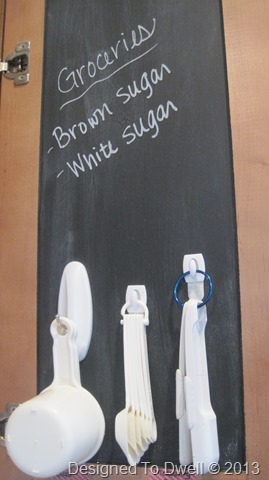 Groceries
- Brown sugar
- White sugar
Designed To Dwell © 2013